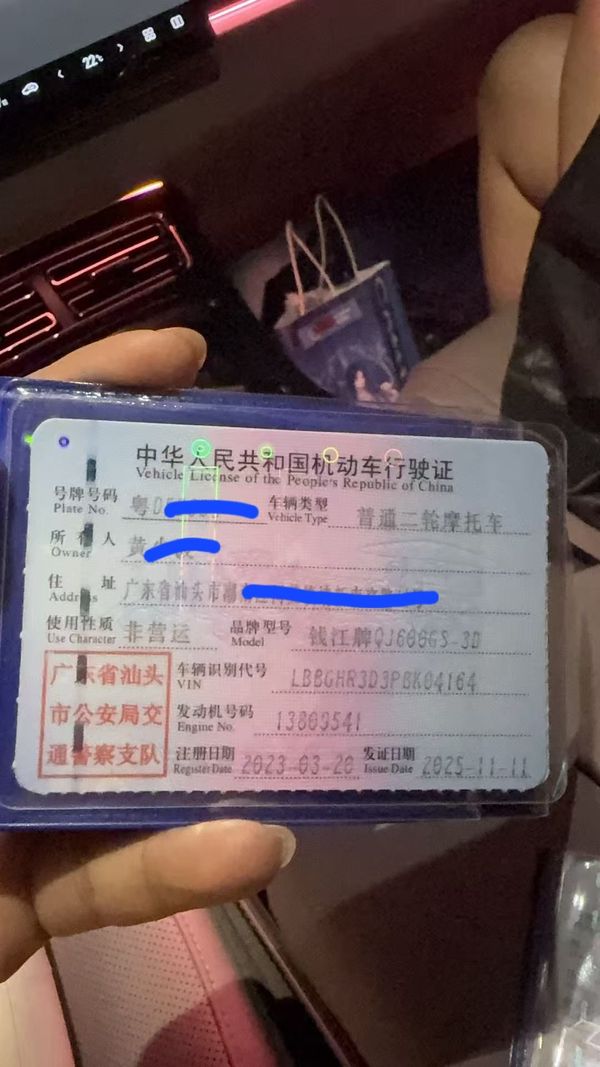 22℃
中华人民共和国机动车行驶证
Vehicle License of the People's Republic of China
号牌号码 粤D 车辆类型 普通二轮摩托车
Plate No. Vehicle Type
所有人 黄
Owner
住址 广东省汕头市潮
Address
使用性质 非营运 品牌型号 钱江牌QJ600GS-3D
Use Character Model
广东省汕头
市公安局交
通警察支队
车辆识别代号 LBBGHR3D3PBK04164
VIN
发动机号码 13809541
Engine No.
注册日期 2023-03-20 发证日期 2025-11-11
Register Date Issue Date